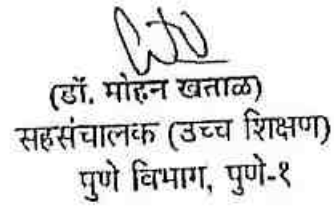 (डॉ. मोहन खताळ)
सहसंचालक (उच्च शिक्षण)
पुणे विभाग, पुणे-१